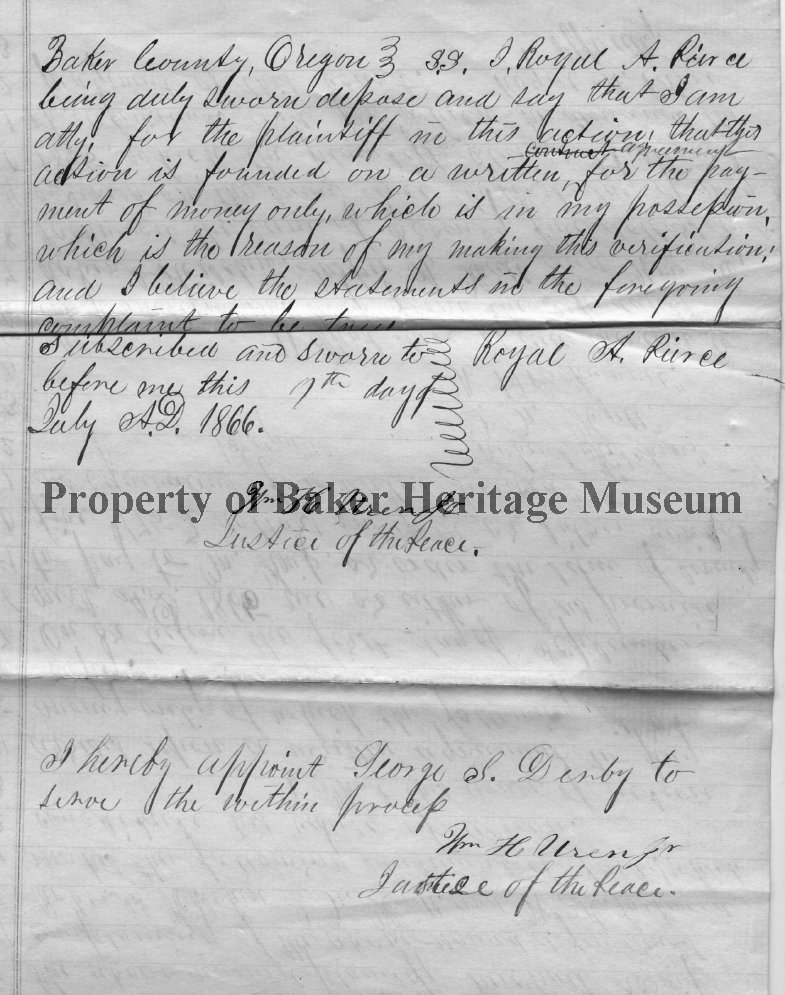 Baker County, Oregon } S.S. I, Royal A. Pierce
being duly sworn depose and say that I am
atty. for the plaintiff in this action; that this
contract agreement
action is founded on a written, for the pay-
ment of money only, which is in my possession,
which is the reason of my making this verification;
and I believe the statements in the foregoing
complaint to be true.
Subscribed and sworn to Royal A. Pierce
before me this 7th day of
July A.D. 1866.
Property of Baker Heritage Museum
Wm H Uren Jr
Justice of the Peace.
I hereby appoint George S. Derby to
serve the within process
Wm H Uren Jr
Justice of the Peace.